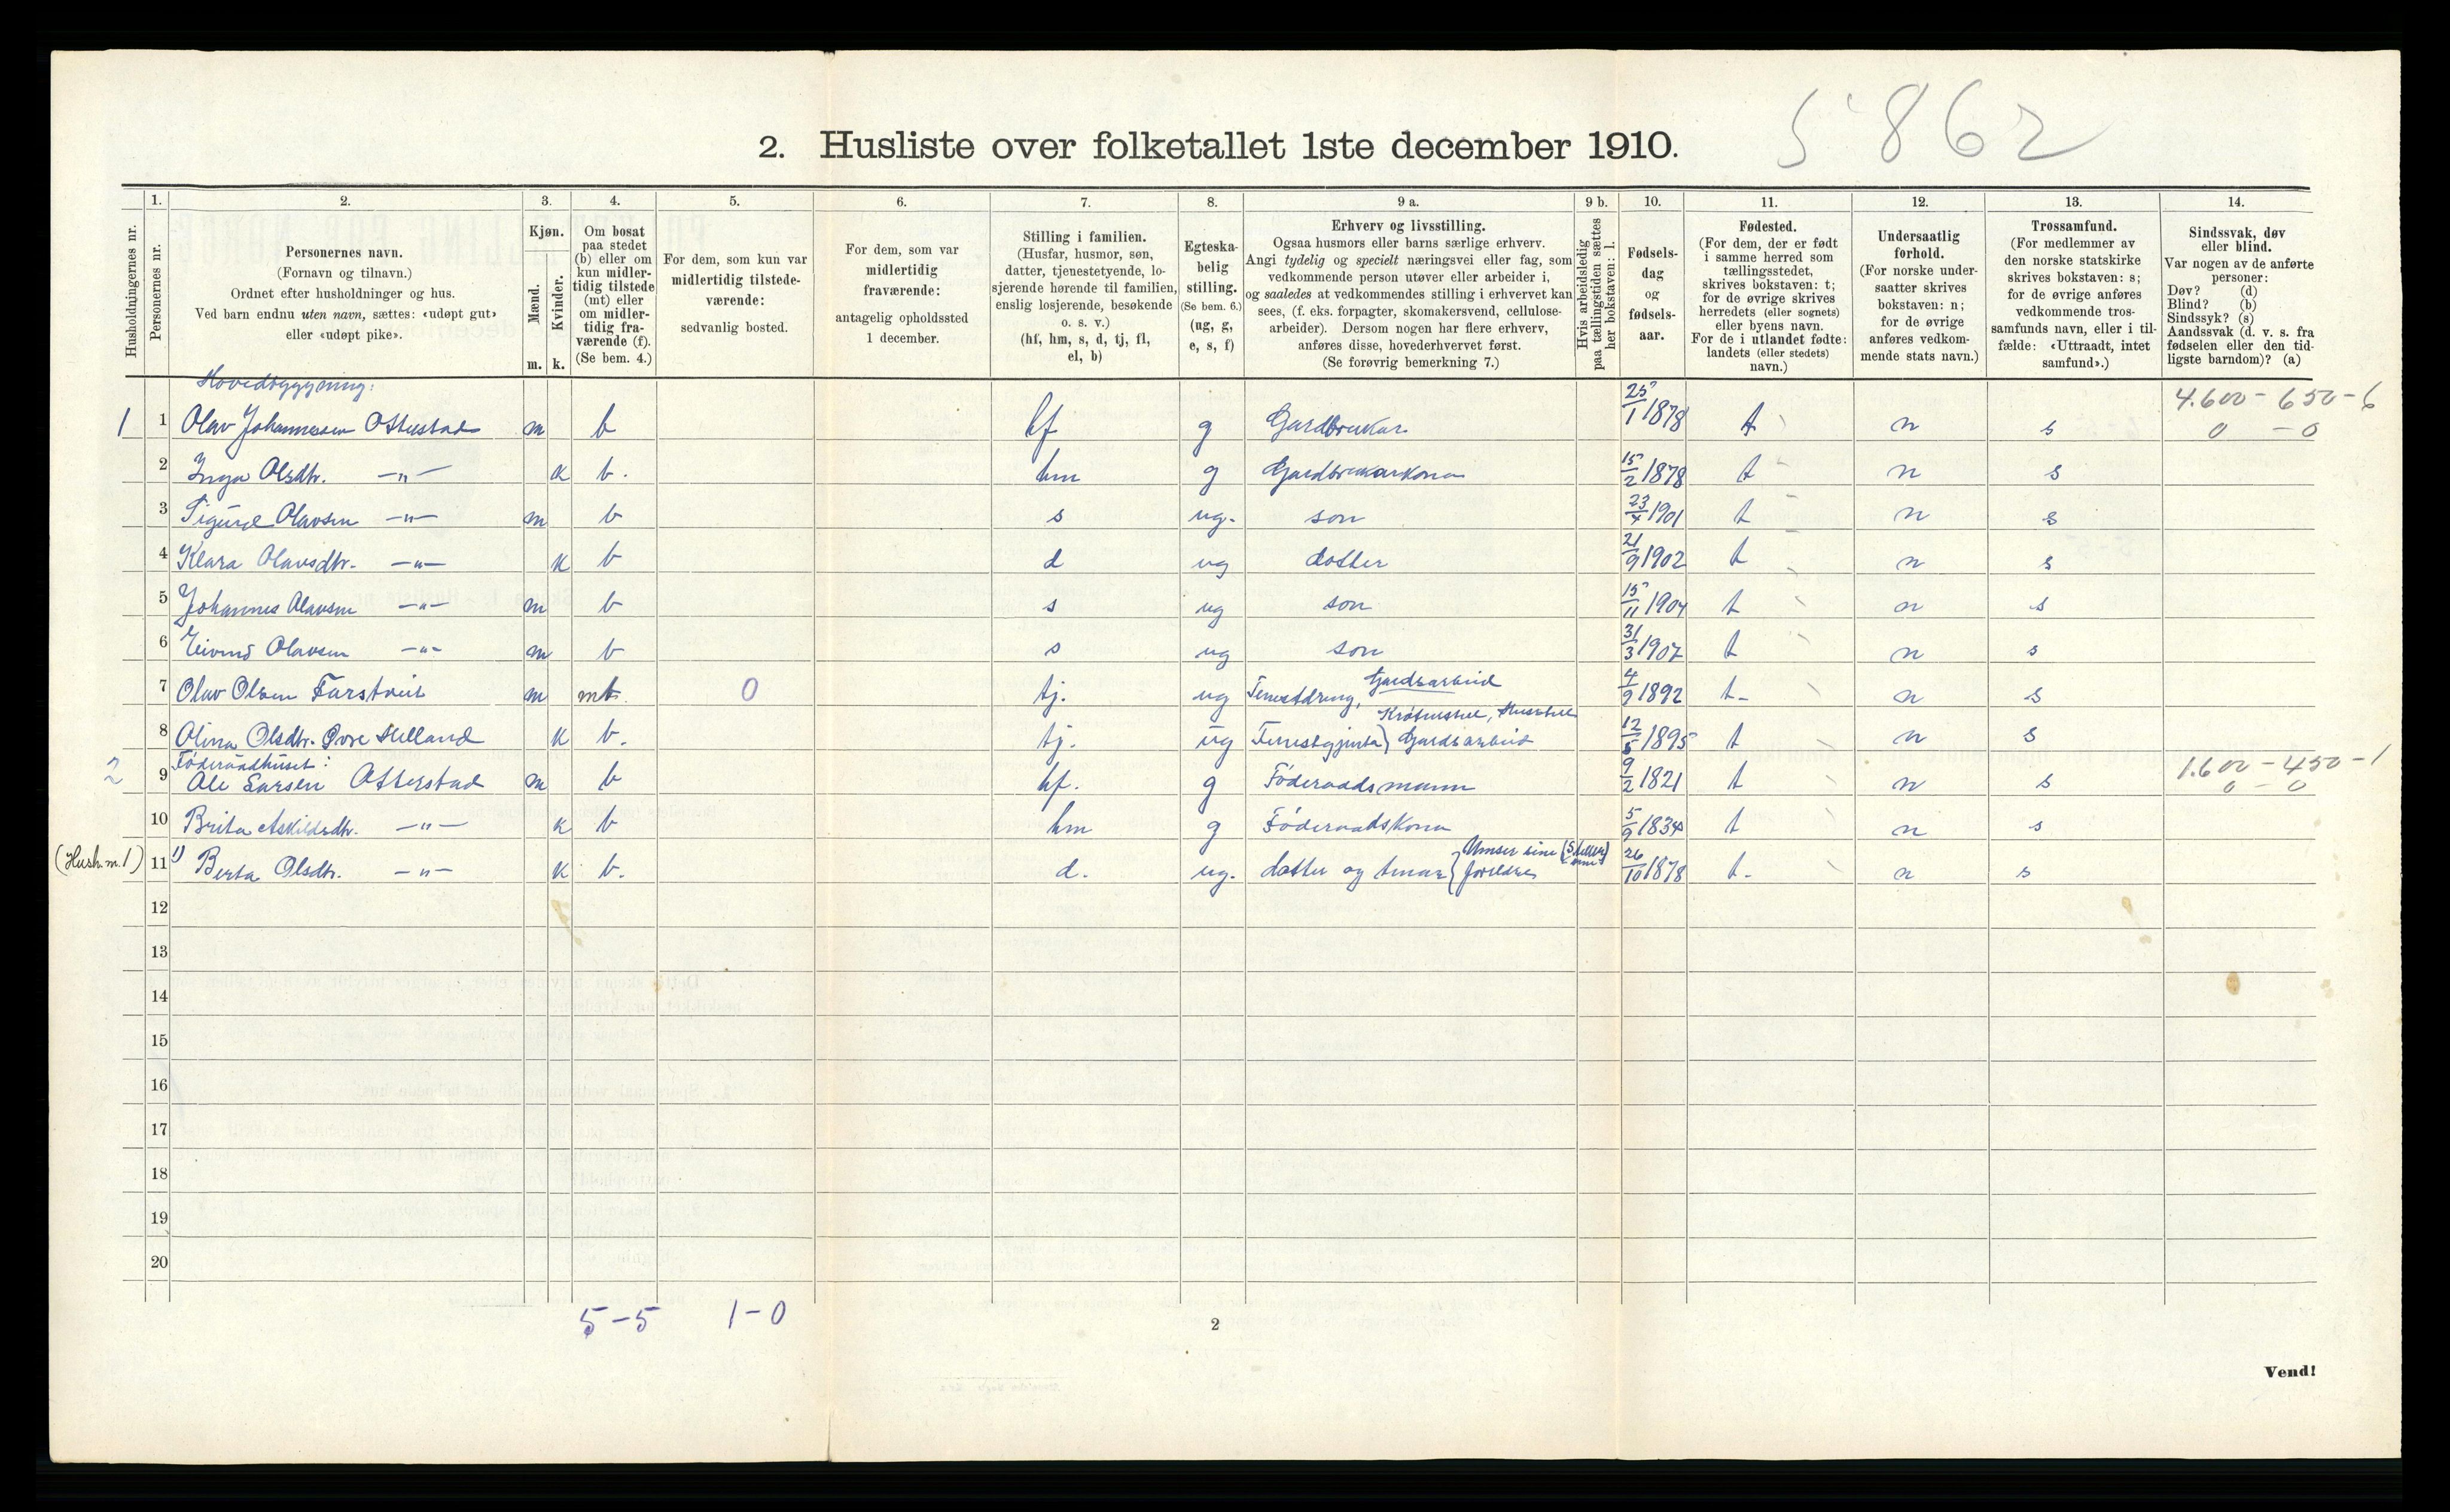 5862
2. Husliste over folketallet 1ste december 1910.
Husholdningernes nr.
1.
Personernes nr.
2.
Personernes navn.
(Fornavn og tilnavn.)
Ordnet efter husholdninger og hus.
Ved barn endnu uten navn, sættes: «udøpt gut»
eller «udøpt pike».
3.
Kjøn.
Mænd.
Kvinder.
m. k.
4.
Om bosat
paa stedet
(b) eller om
kun midler-
tidig tilstede
(mt) eller
om midler-
tidig fra-
værende (f).
(Se bem. 4.)
5.
For dem, som kun var
midlertidig tilstede-
værende:
sedvanlig bosted.
6.
For dem, som var
midlertidig
fraværende:
antagelig opholdssted
1 december.
7.
Stilling i familien.
(Husfar, husmor, søn,
datter, tjenestetyende, lo-
sjerende hørende til familien,
enslig losjerende, besøkende
o. s. v.)
(hf, hm, s, d, tj, fl,
el, b)
8.
Egteska-
belig
stilling.
(Se bem. 6.)
(ug, g,
e, s, f)
9 a.
Erhverv og livsstilling.
Ogsaa husmors eller barns særlige erhverv.
Angi tydelig og specielt næringsvei eller fag, som
vedkommende person utøver eller arbeider i,
og saaledes at vedkommendes stilling i erhvervet kan
sees, (f. eks. forpagter, skomakersvend, cellulose-
arbeider). Dersom nogen har flere erhverv,
anføres disse, hovederhvervet først.
(Se forøvrig bemerkning 7.)
9 b.
Hvis arbeidsledig
paa tællingstiden sættes
her bokstaven: l.
10.
Fødsels-
dag
og
fødsels-
aar.
11.
Fødested.
(For dem, der er født
i samme herred som
tællingsstedet,
skrives bokstaven: t;
for de øvrige skrives
herredets (eller sognets)
eller byens navn.
For de i utlandet fødte:
landets (eller stedets)
navn.)
12.
Undersaatlig
forhold.
(For norske under-
saatter skrives
bokstaven: n;
for de øvrige
anføres vedkom-
mende stats navn.)
13.
Trossamfund.
(For medlemmer av
den norske statskirke
skrives bokstaven: s;
for de øvrige anføres
vedkommende tros-
samfunds navn, eller i til-
fælde: «Uttraadt, intet
samfund».)
14.
Sindssvak, døv
eller blind.
Var nogen av de anførte
personer:
Døv? (d)
Blind? (b)
Sindssyk? (s)
Aandssvak (d. v. s. fra
fødselen eller den tid-
ligste barndom)? (a)
Hovedbygging:
1 1 Olav Johannessen Ottestad m b hf g Gardbrukar 25/1 1878 t n s 4.600 - 650 - 6
0 - 0
2 Inga Olsdtr. -"- k b. hm g Gardbrukarkona 15/2 1878 t n s
3 Sigurd Olavsen -"- m b s ug. son 23/4 1901 t n s
4 Klara Olavsdtr. -"- k b d ug dotter 21/9 1902 t n s
5 Johannes Olavsen -"- m b s ug son 15/11 1904 t n s
6 Eivind Olavsen -"- m b s ug son 31/3 1907 t n s
7 Olav Olsen m mt. 0 tj. ug Tenestdreng, Gardsarbeid 4/9 1892 t n s
8 Olina Olsdtr. Øvre Helland k b. tj. ug Tenestgjenta } Gardsarbeid 12/5 1895 t n s
Föderaadhuset:
2 9 Ole Larsen Otterstad m b hf. g Föderaadsmann 9/2 1821 t n s 1.600 - 450 - 1
0 - 0
10 Brita Askildsdtr. -"- k b hm g Föderaadskona 5/9 1834 t n s
(Hush. nr. 1) 11 1) Berta Olsdtr. -"- k b. d. ug. dotter og { foreldre 26/10 1878 t. n s
12
13
14
15
16
17
18
19
20
5-5 1-0
2
Vend!